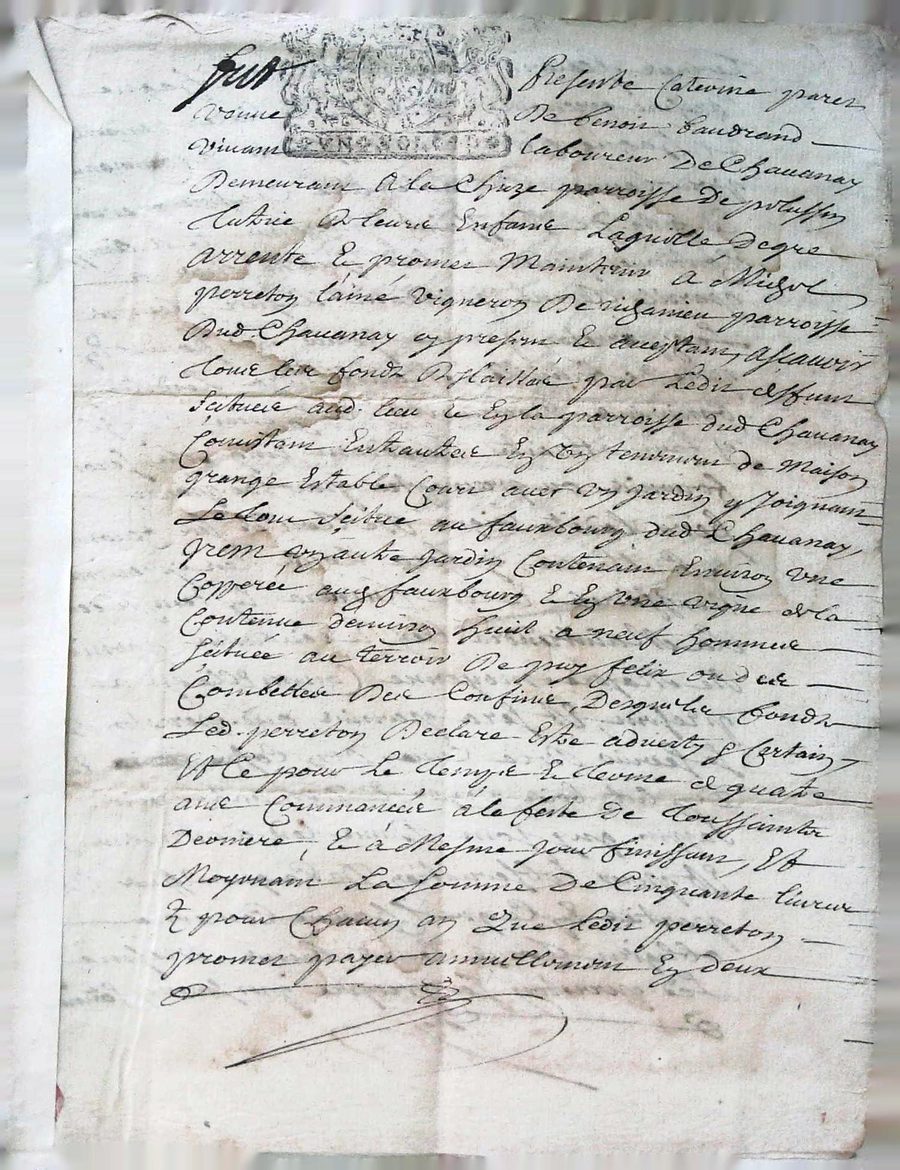 fut Presente Caterine paret
Veuve De benoit baudrand
Vivant laboureur De Chauanay
UN SOL
Demeurant A la Chize parroisse De pelussin
tutrice De leurs Enfans Laquelle Degre
arrente Et promet Maintenir a Michel
perreton l'aine vigneron De parroisse
Dud. Chauanay present Et aceptant, Ascauoir
tous les fondz Delaisses par Ledit deffunt
scitues aud. lieu Et En la parroisse dud. Chauanay
Consistant Entrautres En un tenement de Maison
grange Estable Court avec un Jardin y Joignant
Le tout scitue au fauxbourg dud. Chauanay,
Jtem un autre Jardin Contenant Environ une
Copperée aud. fauxbourg Et En une vigne de la
Contenue denviron huit a neuf hommes
scituée au terroir De puy felix ou des
Combettes Des Confins Desquelz fondz
Led. perreton Declare Estre adverty & Certain
Et Ce pour Le temps Et terme de quatre
ans Commancées a la feste De toussaintz
Derniere, Et a Mesme jour finissant, Et
Moyenant La somme De Cinquante livres
pour Chacun an Que Ledit perreton
promet payer annuellement En deux